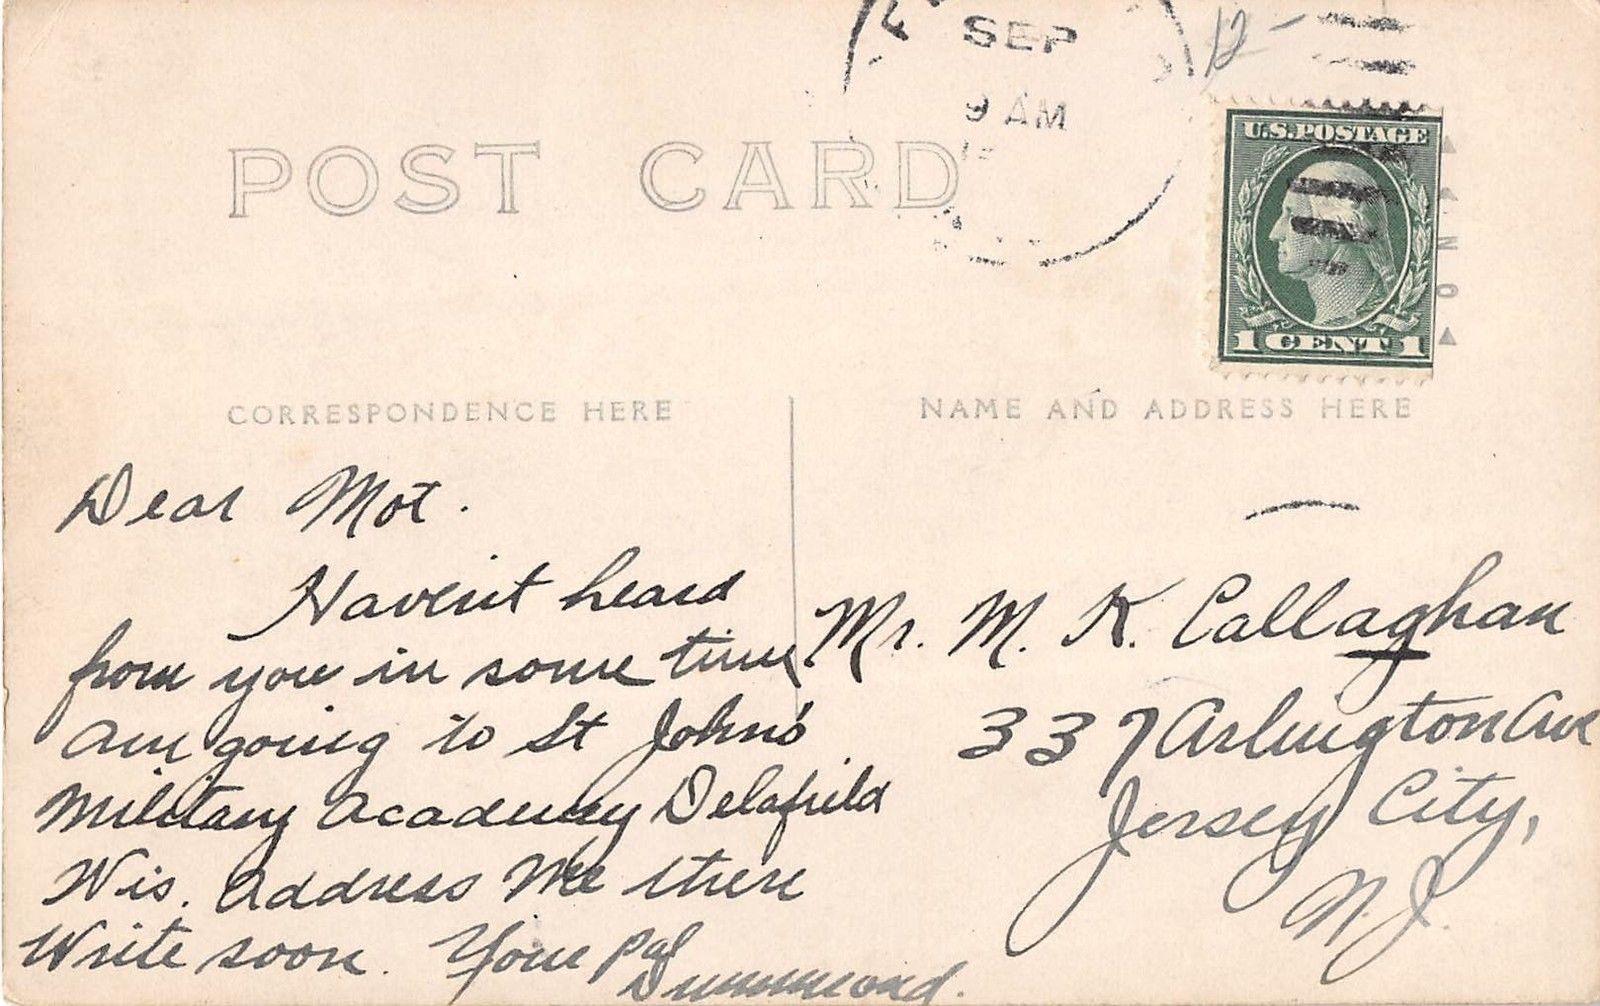 SEP
9 AM
12-
POST CARD
U.S. POSTAGE
1 CENT 1
CORRESPONDENCE HERE
NAME AND ADDRESS HERE
Dear Mot.
Haven't heard
from you in some time
Am going to St John's
Military Academy Delafield
Wis. Address Me there
Write soon. Your Pal
Drummond.
Mr. M. K. Callaghan
337 Arlington Ave
Jersey City,
N.J.